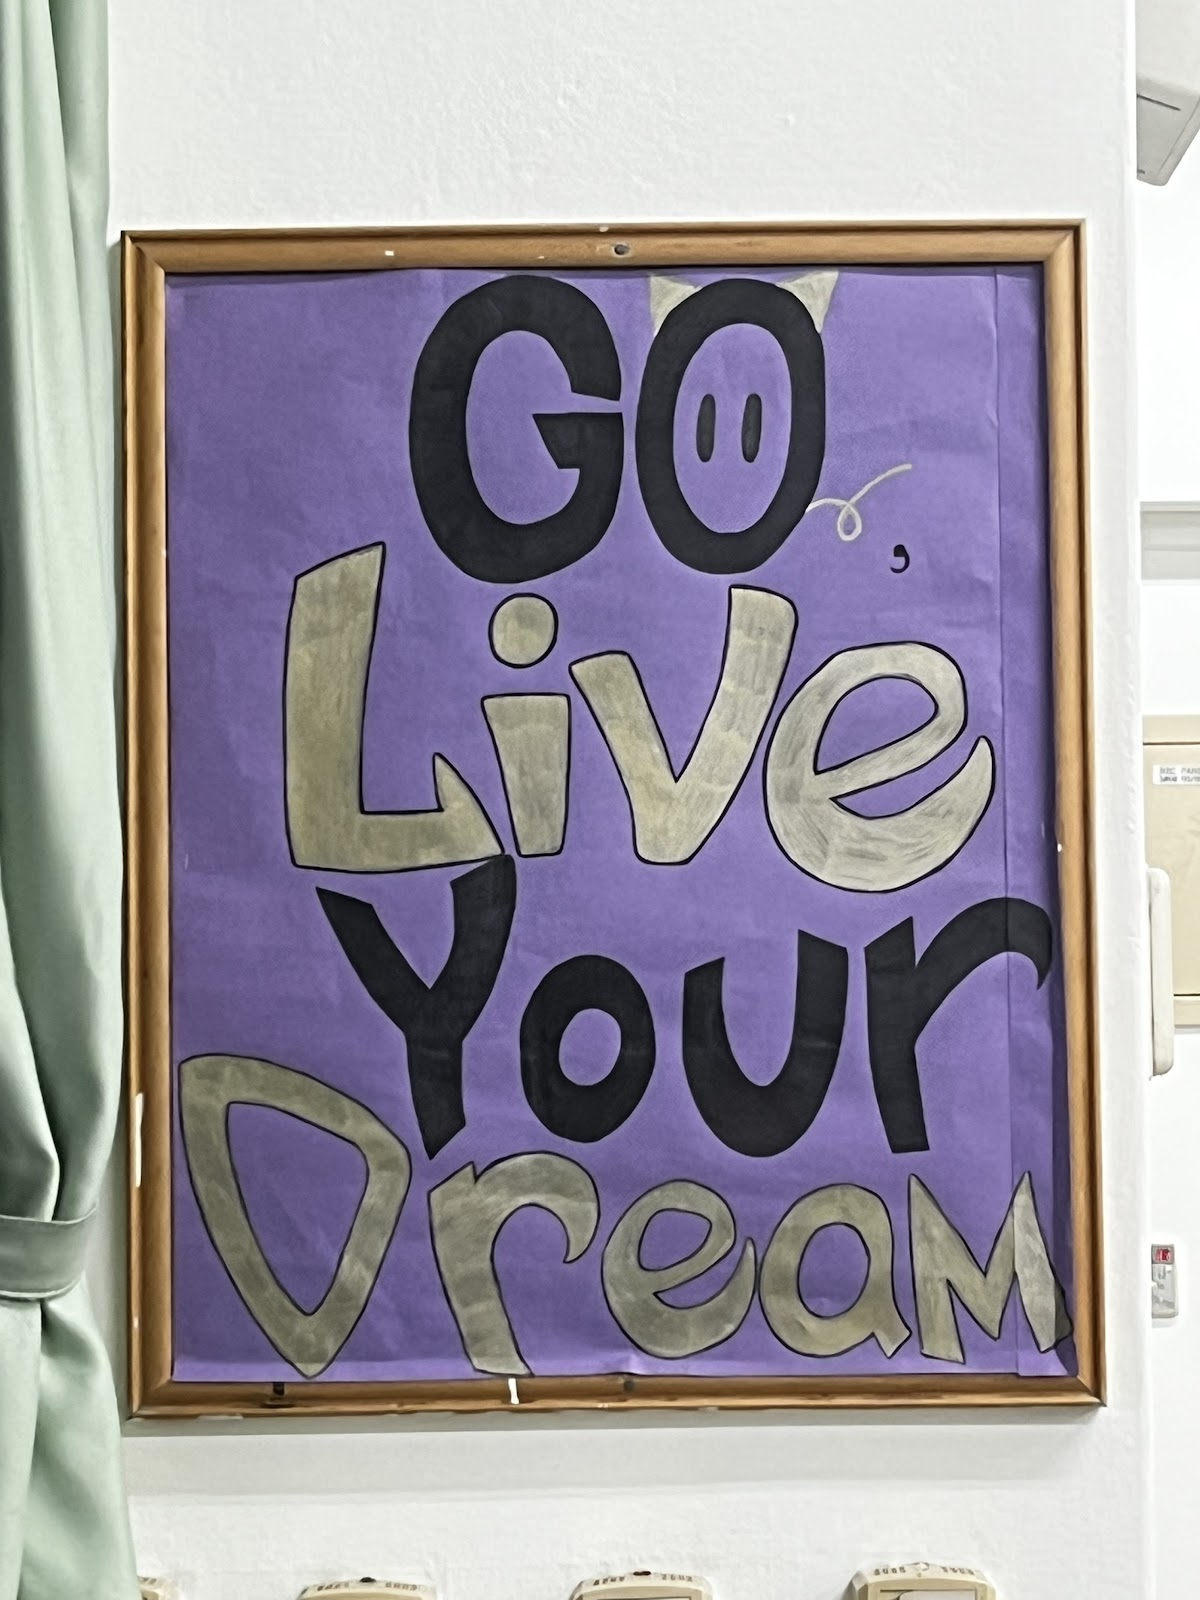 GO,
Live
Your
Dream